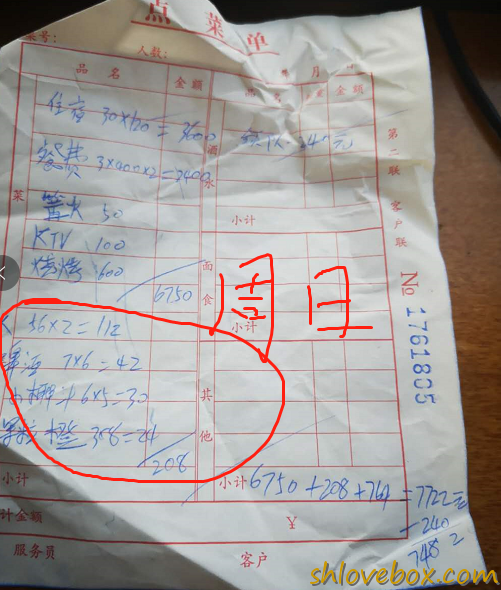 点菜单
人数:
品名 金额 月 金额
住宿 30×120=3600
餐费 3×400×2=2400
篝火 50
KTV 100
烧烤 600
6750
56×2=112
啤酒 7×6=42
6×5=30
果粒橙 3×8=24
208
小计
计金额
服务员
菜
酒水
小计
面食
小计
其他
小计 6750+208+764=7722元
-240
7482
¥
客户
周日
第二联 客户联
No 1761805
shlovebox.com